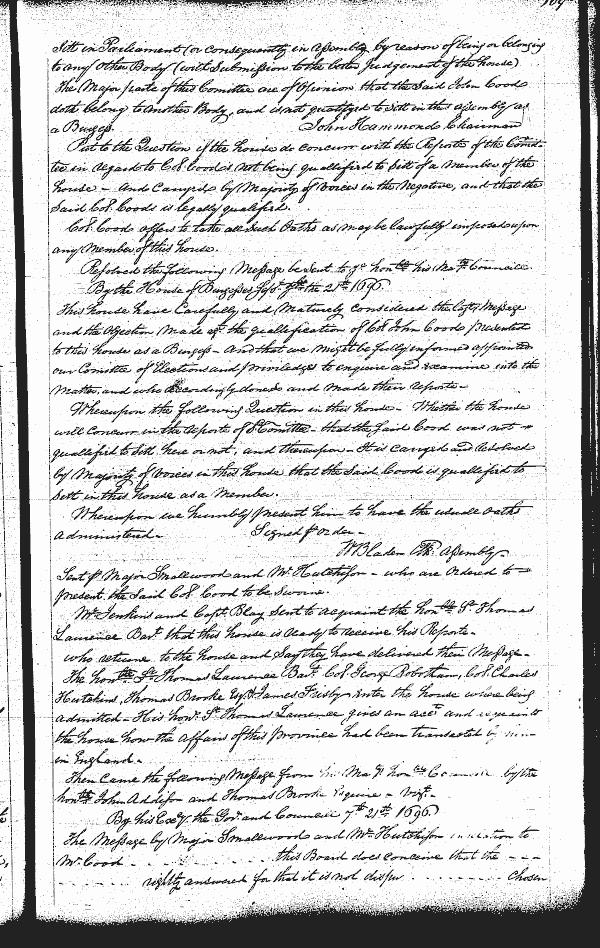 Sitt in Parliament (or consequently in assembly by reason of being or belonging
to any other Body (with Submission to the better Judgement of the house)
The Major parte of this Comittee are of Opinion that the Said John Coode
doth belong to another Body, and is not quallifyed to Sitt in this assembly as
a Burgess. John Hammond Chairman
Put to the Question if the house do concurr with the Reporte of the Comit-
tee in regard to Col: Coode's not being quallefied to Sitt as a member of the
house - And Carryed by Majority of voices in the Negative, and that the
Said Col. Coode is legally qualified.
Col. Coode offers to take all Such Oaths as may be lawfully imposed upon
any Member of this house.
Resolved the following Message be sent to ye honble his Matys Councill.
By the House of Burgesses 7br the 21st 1696.
This house have Carefully and Maturely considered the last Message
and the Objection made of the quallification of Col: John Coode presented
to this house as a Burgess - And that we might be fully informed appointed
our Comittee of Elections and priviledges to enquire and examine into the
Matter, and who Accordingly done so and made their reporte -
Whereupon the following Question in this house - Whether the house
will Concurr in the reporte of Sd Comittee - that the Said Coode was not
quallefied to Sitt here or not, and thereupon It is carryed and Resolved
by Majority of Voices in this house that the Said Coode is quallefied to
Sitt in this house as a Member.
Whereupon we humbly present him to have the usuall oaths
administered - Signed p Order -
W Bladen Clk. Assembly
Sent p Major Smallwood and Mr Hutchison - who are Ordered to
present the Said Col. Coode to be Sworne.
Mr Jenkins and Capt. Blay Sent to acquaint the honble Sr Thomas
Laurence Bart. that this house is ready to receive his Reporte.
who returne to the house and Say they have delivered their Message.
The honble Sr Thomas Laurence Bart Col. George Robotham, Col. Charles
Hutchins, Thomas Brooke Esqr James Frisby enter the house where being
admitted - His honr Sr Thomas Laurence gives an acct and acquaints
the house how the Affairs of this Province had been transacted by
in England -
Then came the following Message from his Matys honble Councill by the
honble John Addison and Thomas Brooke Esquire - vizt -
By his Excy the Govr and Councill 7br 21st 1696
The Message by Major Smallwood and Mr Hutchison in relation to
Mr Cood this Board does conceive that the
rightly answered for that it is not Chosen